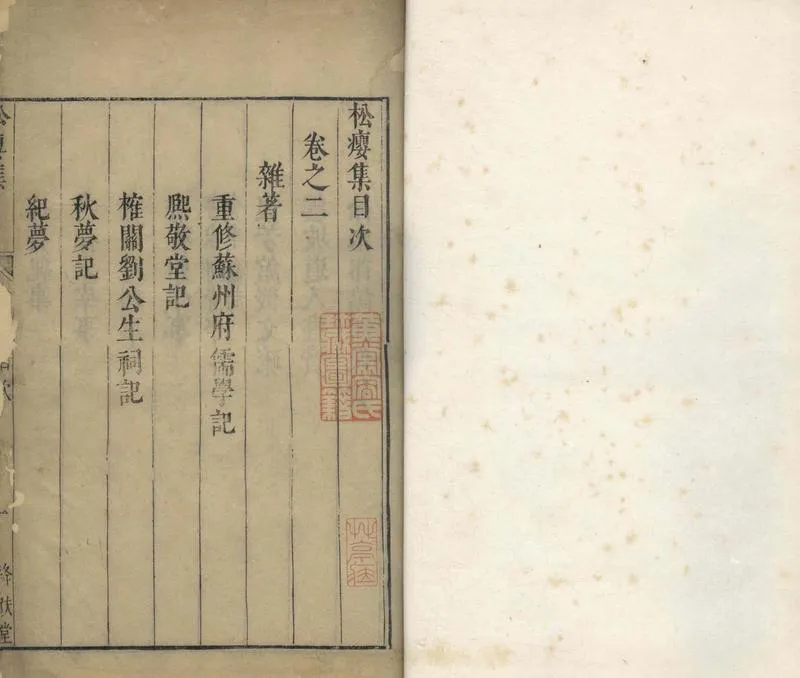 松癭集目次
卷之二
雜著
重修蘇州府儒學記
熈敬堂記
榷關劉公生祠記
秋夢記
紀夢